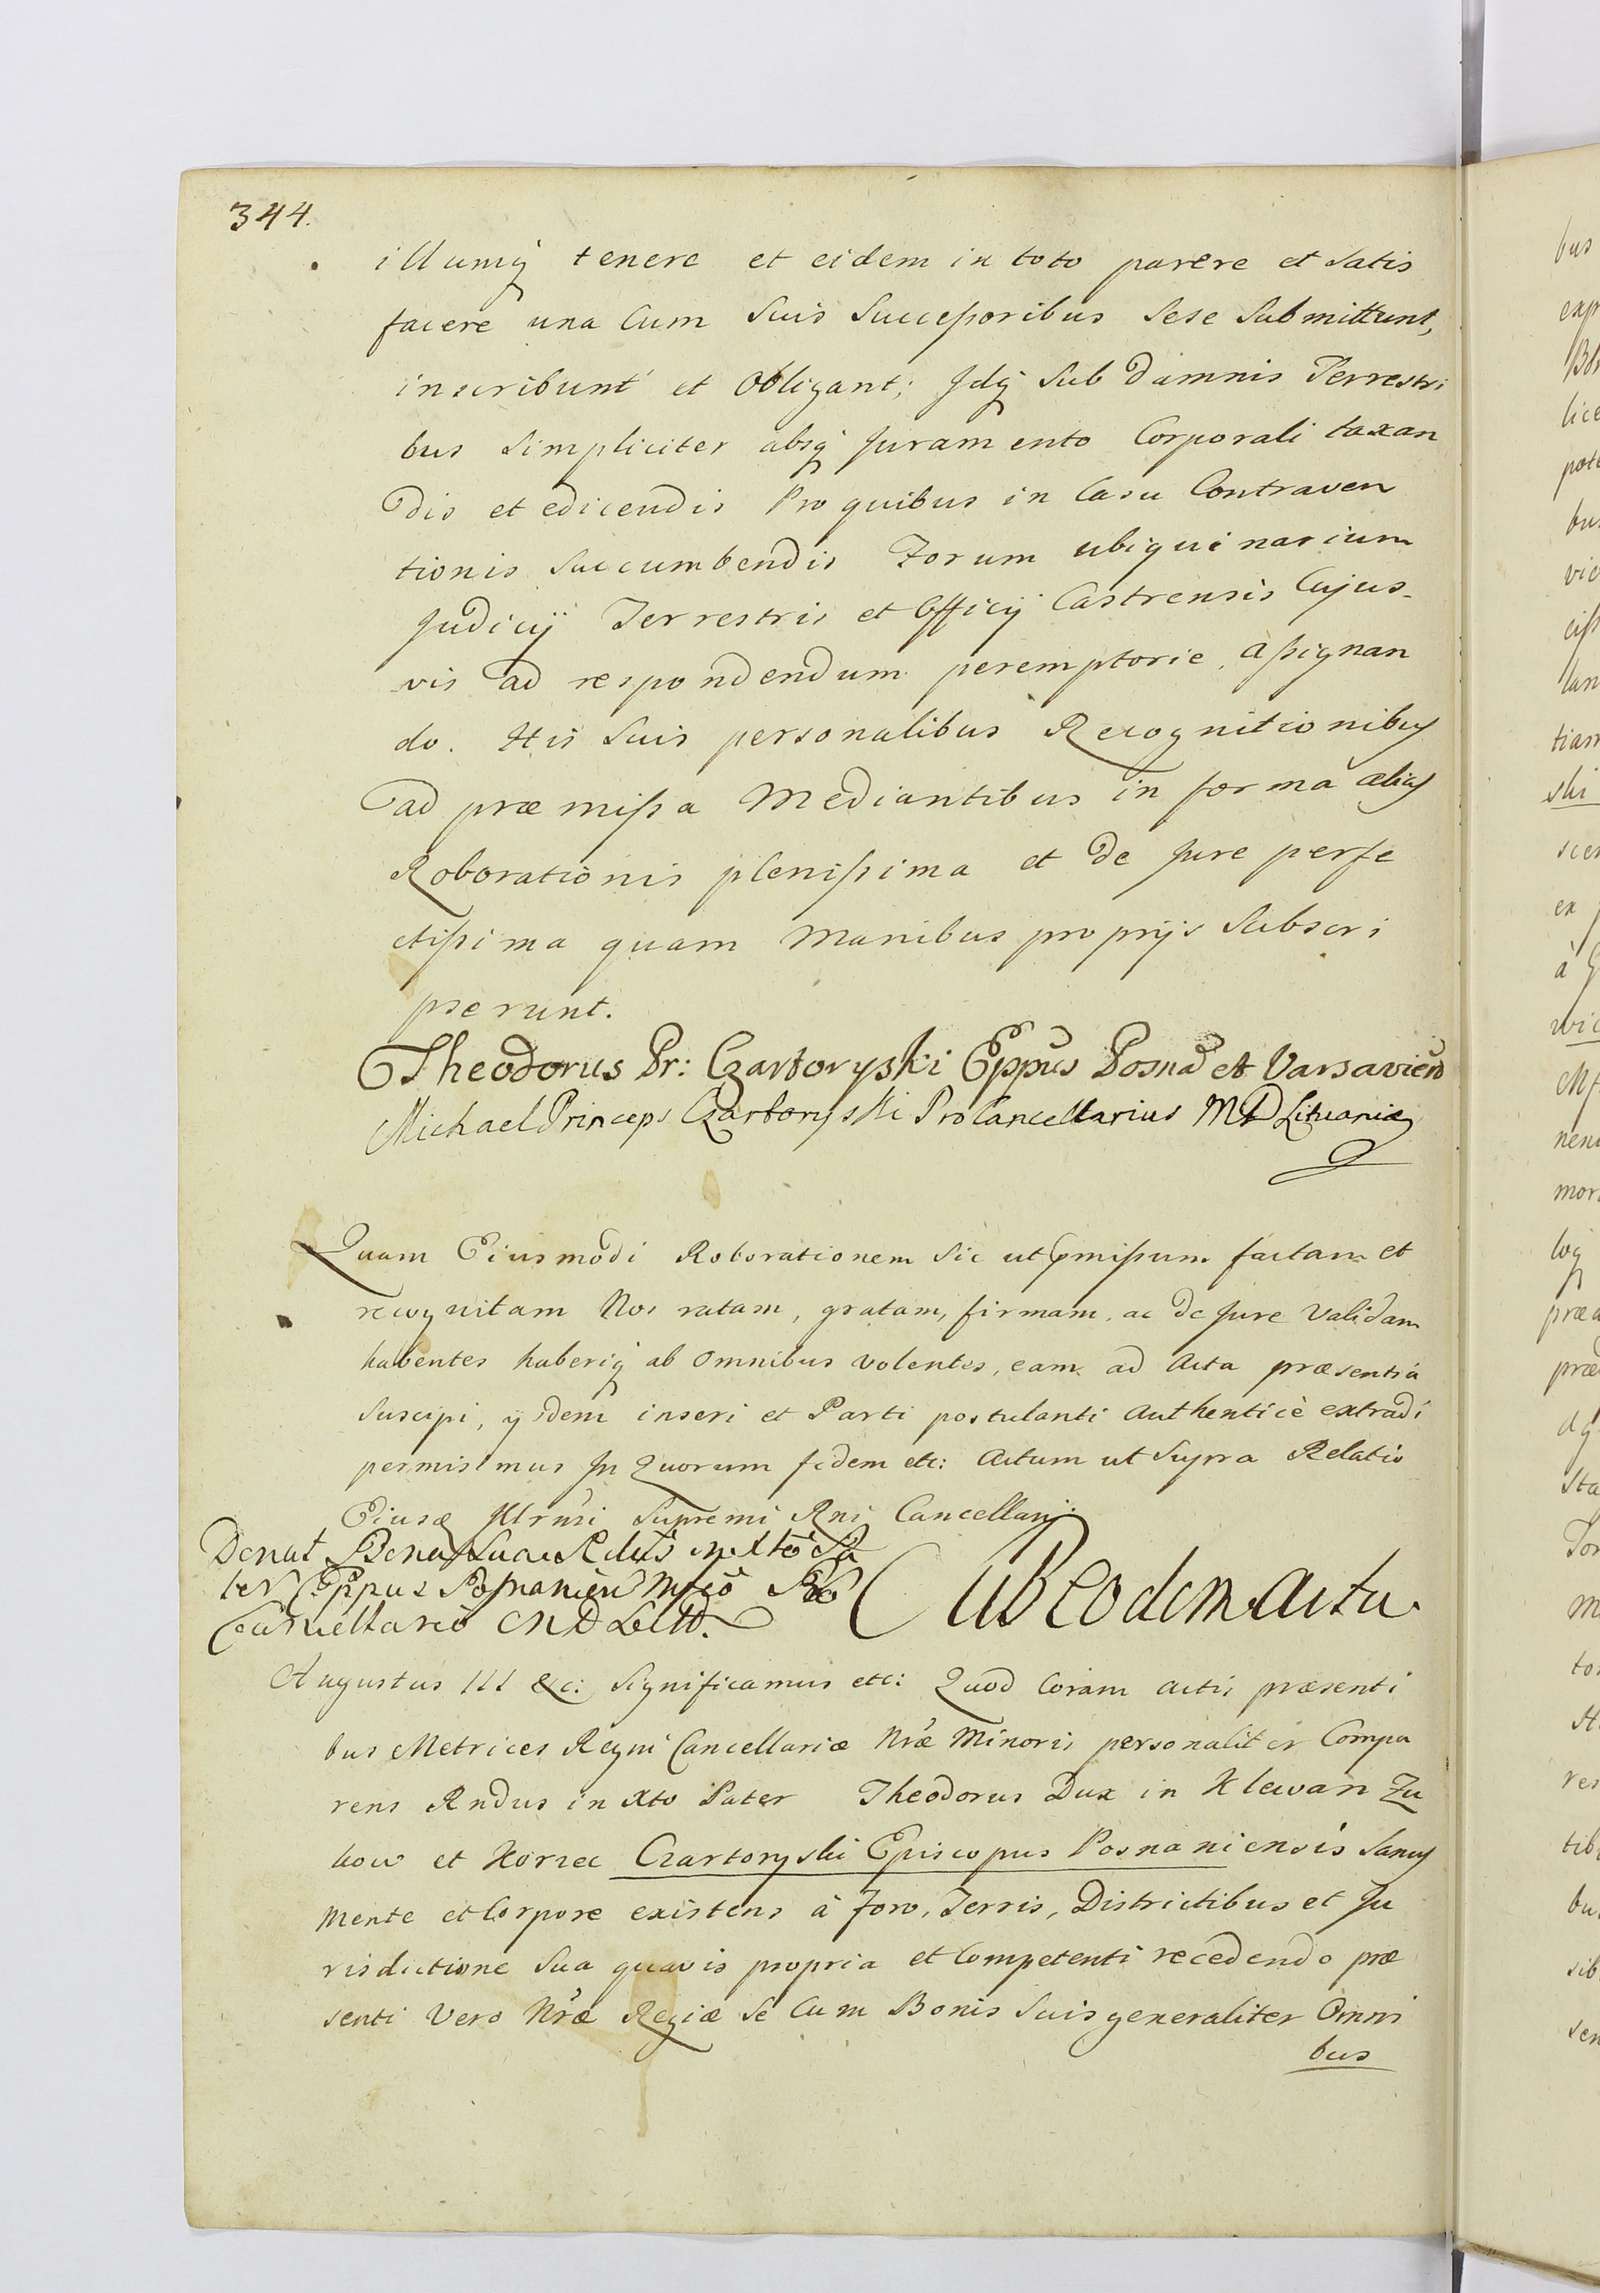 344.
illumq tenere et eidem in toto parere et Satis
facere una Cum Suis Succeßoribus Sese Submittunt,
inscribunt et Obligant; Jdq Sub Damnis Terrestri
bus Simpliciter absq Juramento Corporali taxan
dis et edicendis Pro quibus in Casu Contraven
tionis Succumbendis Forum ubiquinarium
Judicij Terrestris et Officij Castrensis Cujus-
vis ad respondendum peremptorie aßignan
do. His Suis personalibus Recognitionibus
ad præmißa Mediantibus in forma
Roborationis plenißima et de Jure perfe
ctißima quam Manibus proprijs Subscri
pserunt.
Theodorus Pr: Czartoryski Eppus Posna et Varsavien
Michael Princeps Czartoryski ProCancellarius MD Lituaniæ
Quam Eiusmodi Roborationem Sic ut pmißum factam et
recognitam Nos ratam, gratam, firmam, ac de Jure Validam
habentes haberiq ab Omnibus volentes, eam ad Acta præsentia
Suscipi, ijsdem inseri et Parti postulanti Authenticè extradi
permisimus Jn Quorum fidem etc: Actum ut Supra Relatio
Eiusd Jllrmi Supremi Rni Cancellarij
Donat Bona Sua
ter Eppus Posnanien
Cancellario MD Litt.
Sub eodem Actu.
Augustus III &c: Significamus etc: Quod Coram Actis præsenti
bus Metrices Regni Cancellariæ Nræ Minoris personaliter Compa
rens Rndus in Xto Pater Theodorus Dux in Klewan Zu
kow et Korzec Czartoryski Episcopus Posnaniensis Sanus
Mente et Corpore existens à Foro, Terris, Districtibus et Ju
risdictione Sua quavis propria et Competenti recedendo præ
senti Vero Nræ Regiæ Se Cum Bonis Suis generaliter Omni
bus